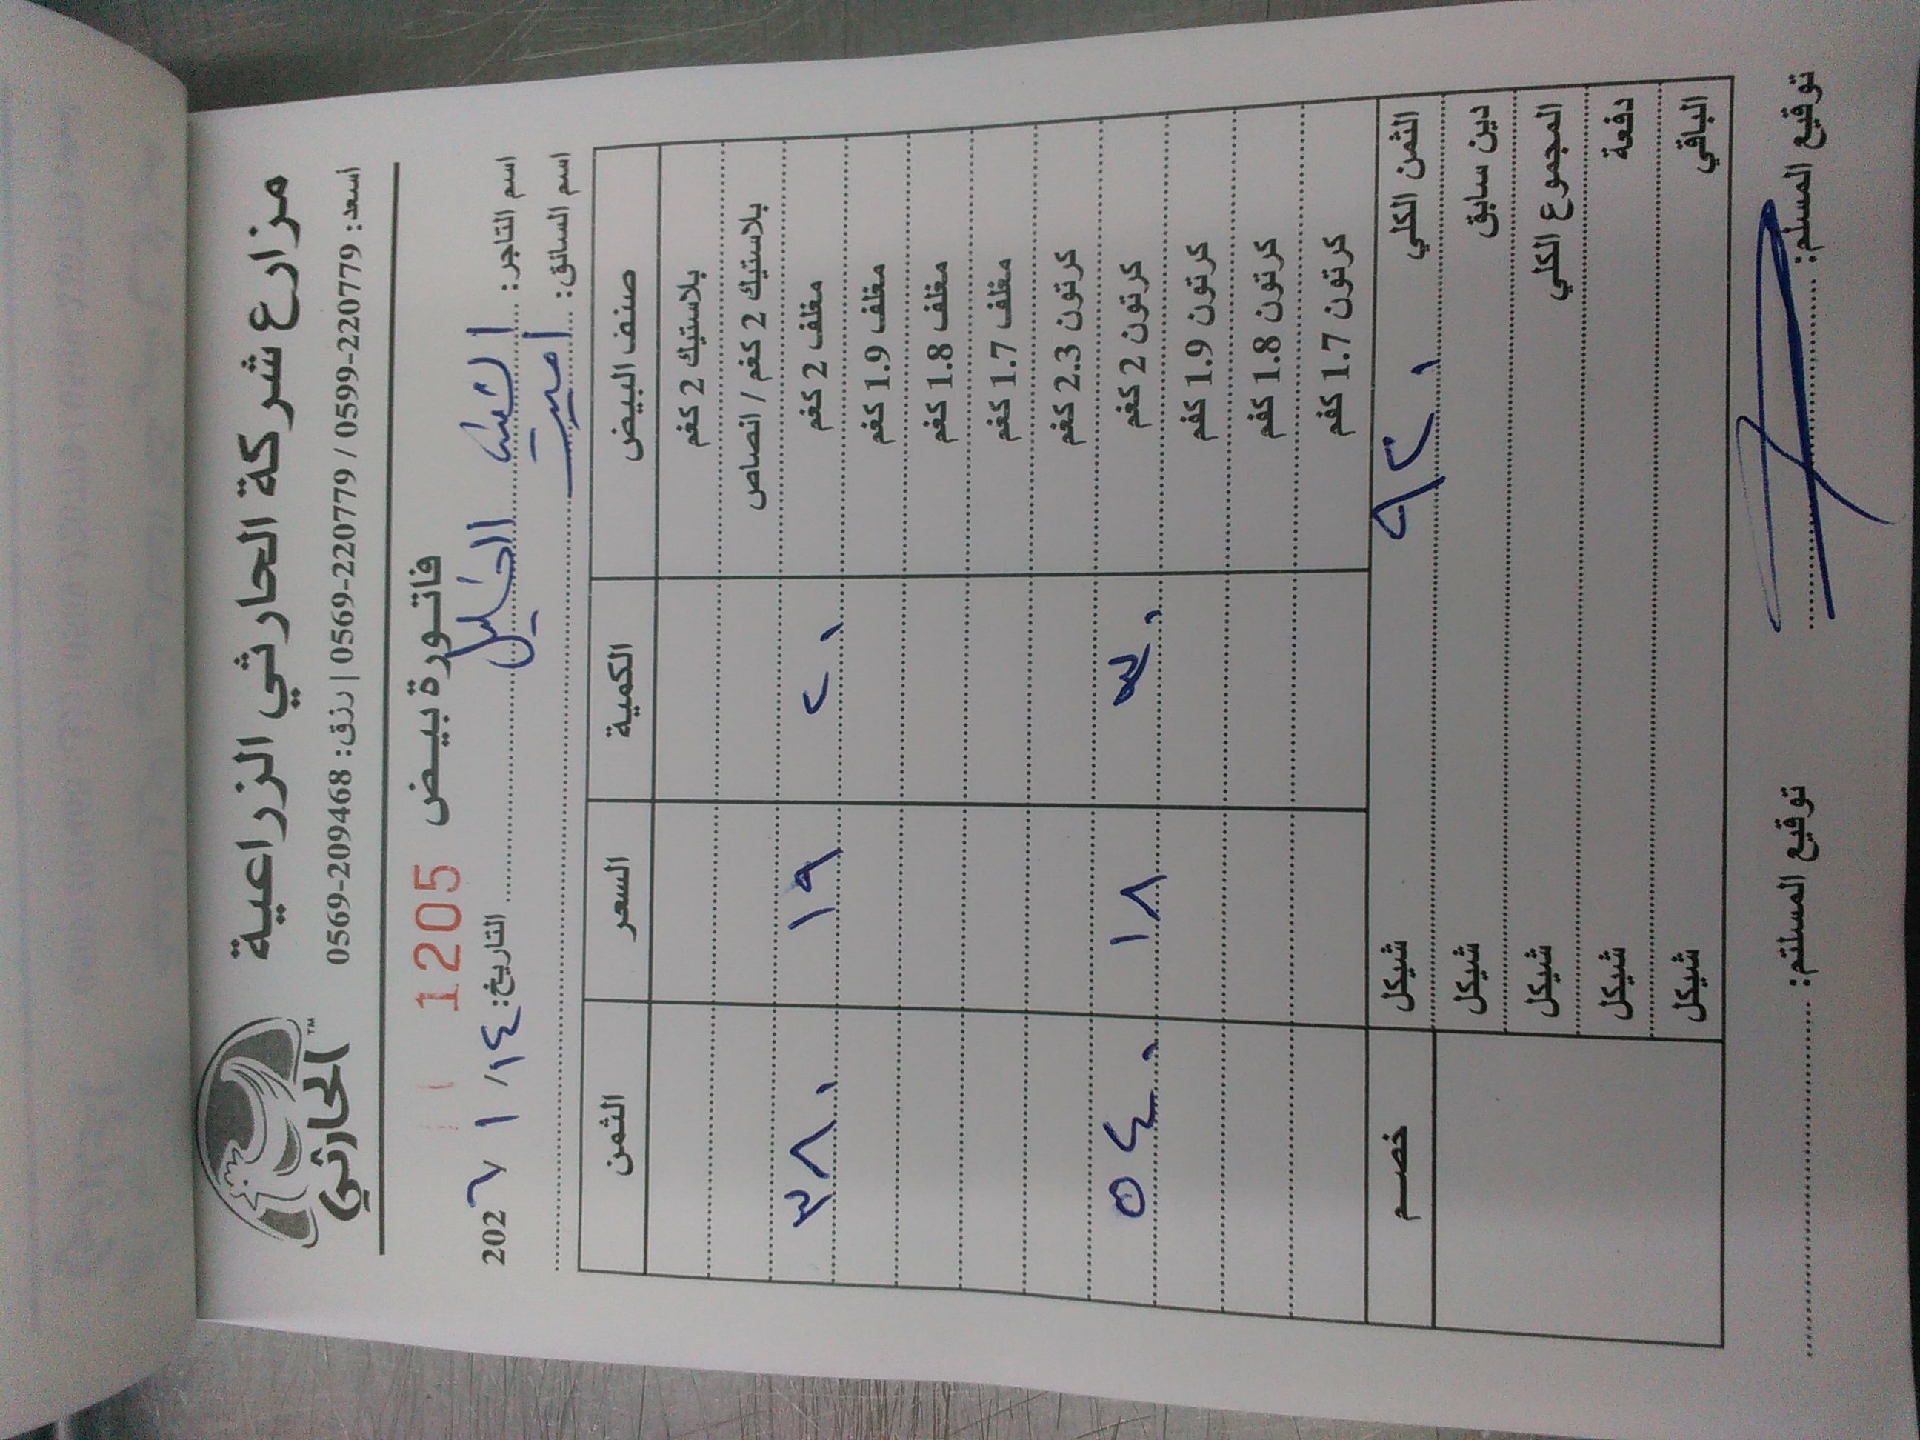 مزارع شركة الحارثي الزراعية
الحارثي ™
اسعد: 0599-220779 / 0569-220779 | رزق: 0569-209468
فاتورة بيض 1205
اسم التاجر: الخليل التاريخ: ١٤ / ١ / 202٦
اسم السائق: أمير
صنف البيض الكمية السعر الثمن
بلاستيك 2 كغم
بلاستيك 2 كغم / انصاص
مغلف 2 كغم ٢٠ ١٩ ٣٨٠
مغلف 1.9 كغم
مغلف 1.8 كغم
مغلف 1.7 كغم
كرتون 2.3 كغم
كرتون 2 كغم ٣٠ ١٨ ٥٤٠
كرتون 1.9 كغم
كرتون 1.8 كغم
كرتون 1.7 كغم
الثمن الكلي ٩٢٠ شيكل خصم
دين سابق شيكل
المجموع الكلي شيكل
دفعة شيكل
الباقي شيكل
توقيع المسلم: توقيع المستلم: